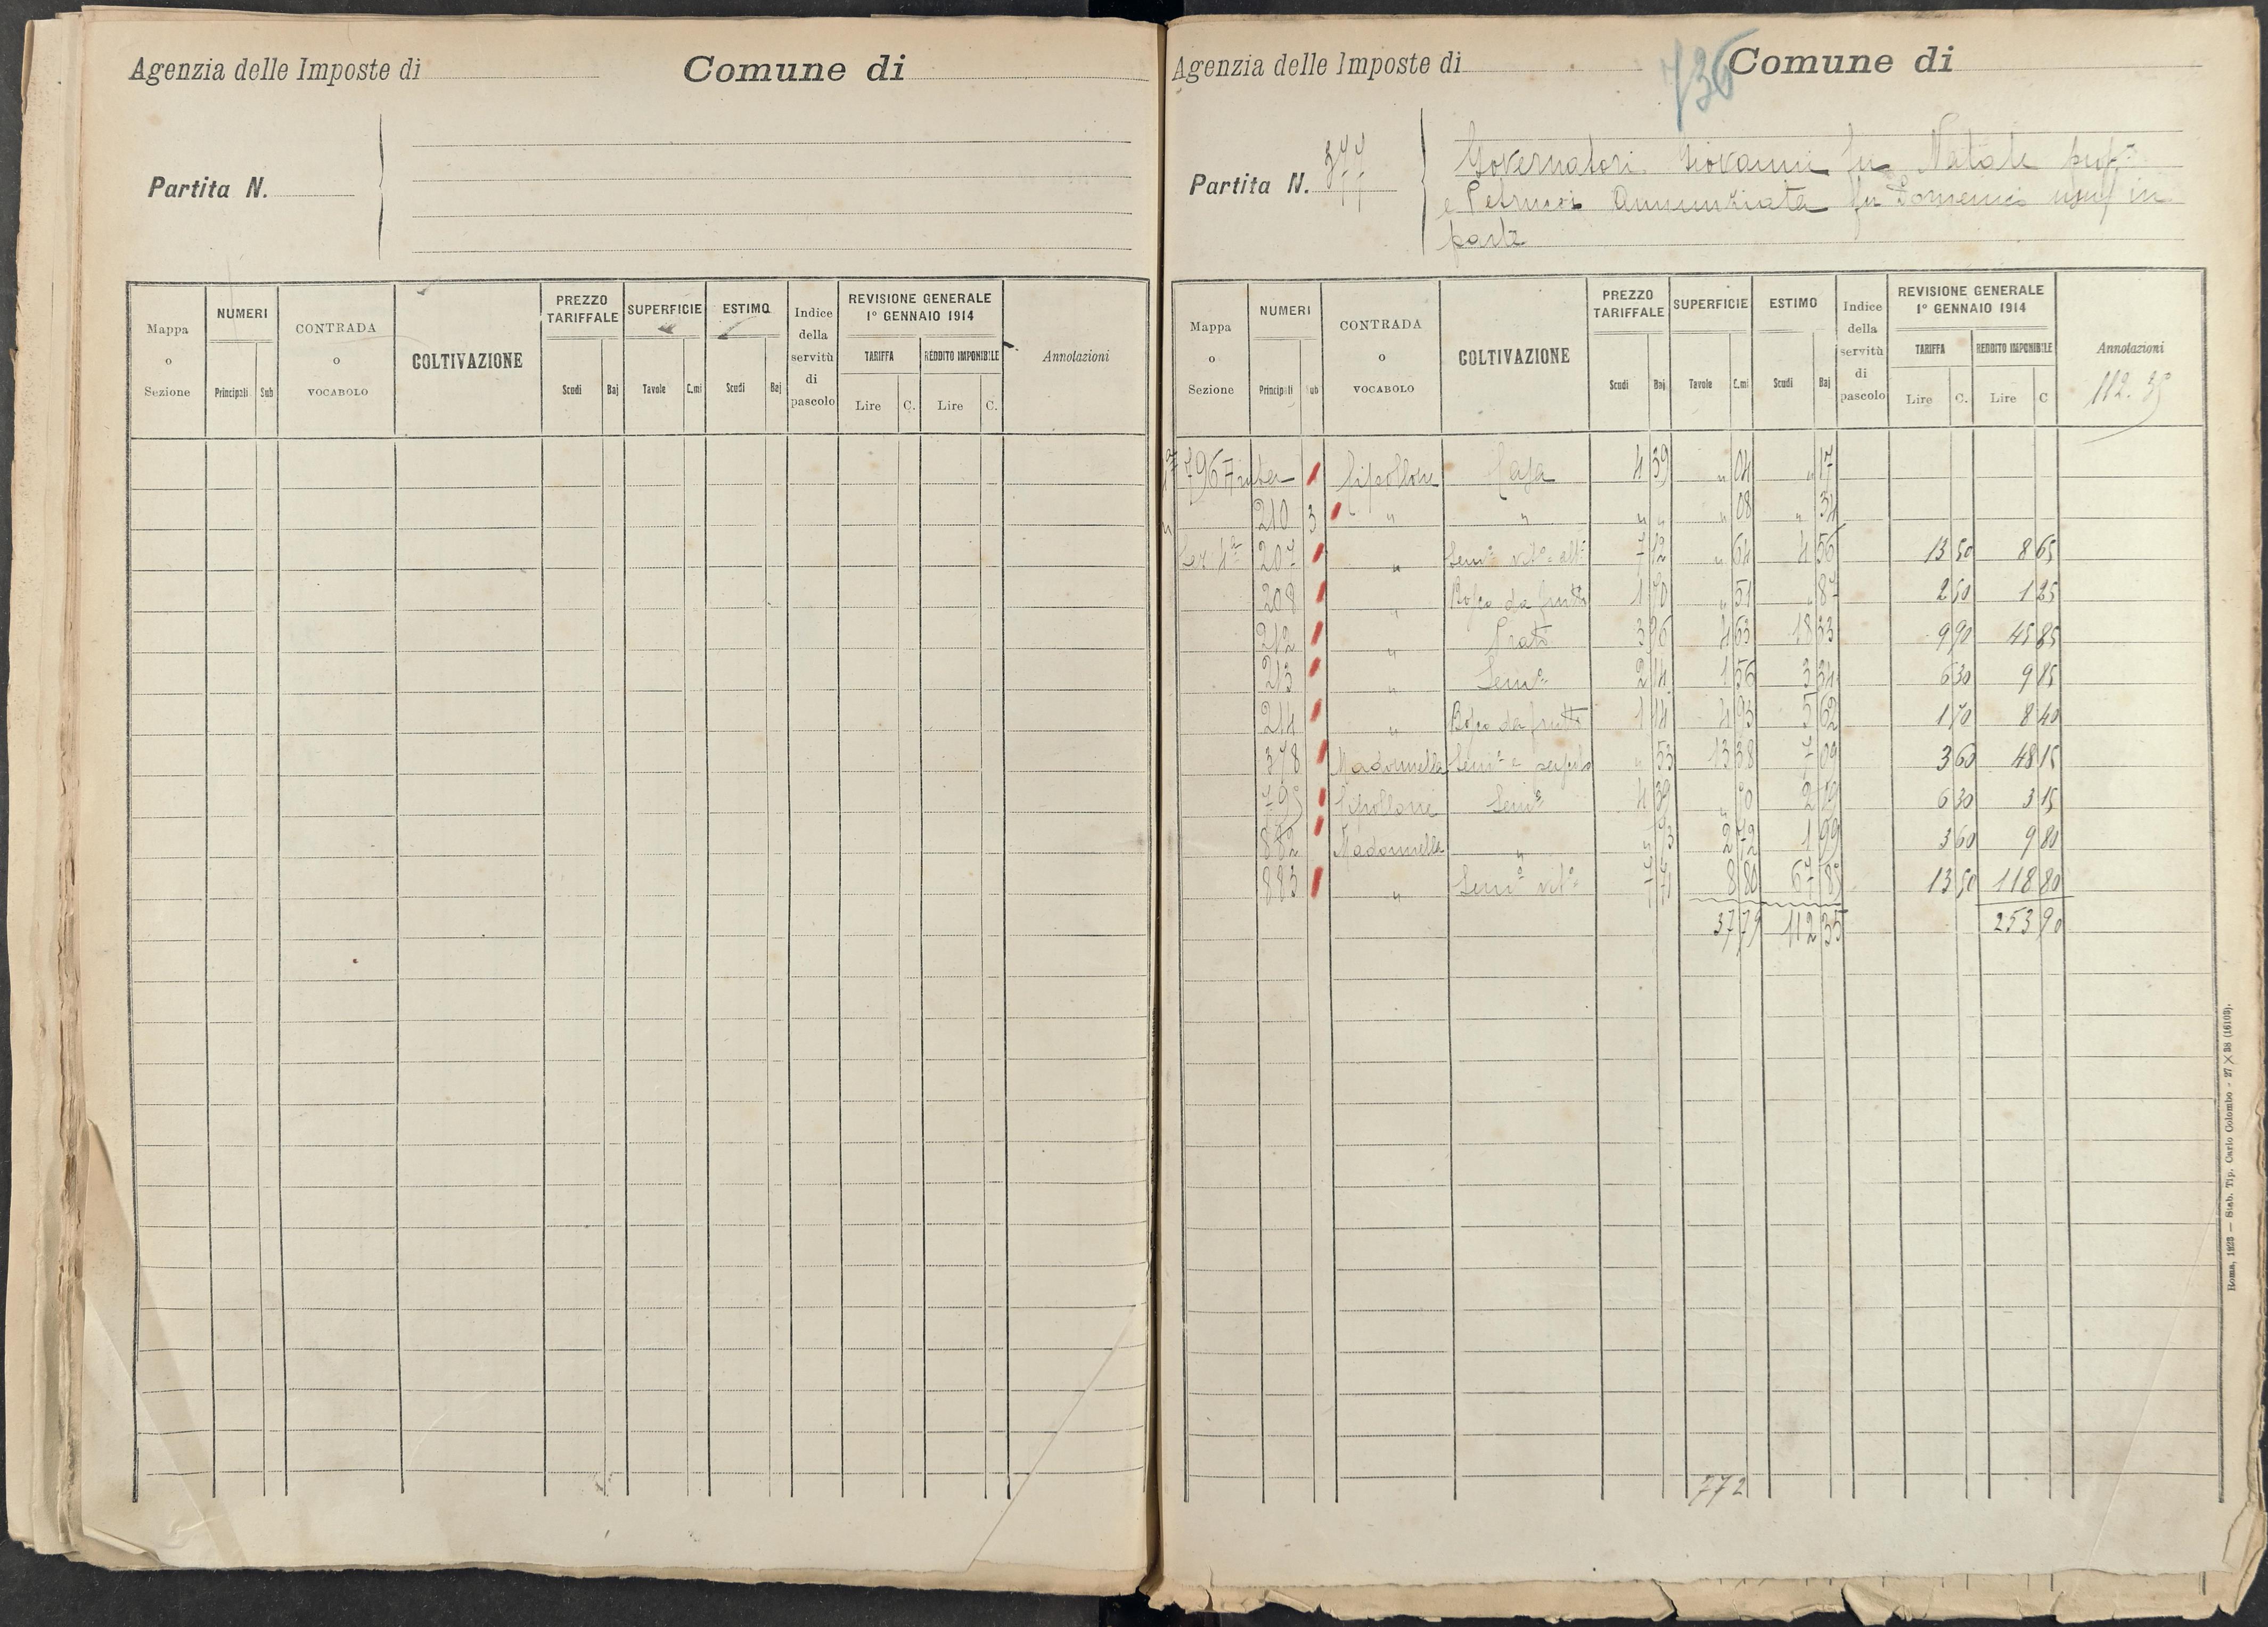 Agenzia delle Imposte di
Comune di
Partita N.
Mappa o Sezione
NUMERI
Principali
Sub
CONTRADA o VOCABOLO
COLTIVAZIONE
PREZZO TARIFFALE
Scudi
Baj
SUPERFICIE
Tavole
C.mi
ESTIMO
Scudi
Baj
Indice della servitù di pascolo
REVISIONE GENERALE 1° GENNAIO 1914
TARIFFA
REDDITO IMPONIBILE
Lire
C.
Lire
C.
Annotazioni
Agenzia delle Imposte di
736
Comune di
Partita N. 377
Governatori Giovanni fu Natale
e Petrucci Annunziata fu Domenico usuf in
parte
Mappa o Sezione
NUMERI
Principali
Sub
CONTRADA o VOCABOLO
COLTIVAZIONE
PREZZO TARIFFALE
Scudi
Baj
SUPERFICIE
Tavole
C.mi
ESTIMO
Scudi
Baj
Indice della servitù di pascolo
REVISIONE GENERALE 1° GENNAIO 1914
TARIFFA
REDDITO IMPONIBILE
Lire
C.
Lire
C
Annotazioni
112.35
796 Casa 4 39 " 04 " 17
210 3 " " " " " 08 " 34
Sez 4ª 207 " Semo vito altо 7 12 " 64 4 56 13 50 8 65
208 " Bosco da frutto 1 70 " 51 " 87 2 50 1 25
212 " Prato 3 96 4 63 18 33 9 90 45 85
213 " Semo 2 14 1 56 3 34 6 30 9 85
214 " Bosco da frutto 1 14 4 93 5 62 1 70 8 40
378 Madonnella Semo e " 53 13 38 7 09 3 60 48 15
795 Cipollone Semo 4 39 " 50 2 19 6 30 3 15
882 Madonnella " " 73 2 72 1 99 3 60 9 80
883 " Semo vito 7 71 8 80 67 85 13 50 118 80
37 79 112 35 253 90
772
Roma, 1923 — Stab. Tip. Carlo Colombo - 27 X 38 (16103).